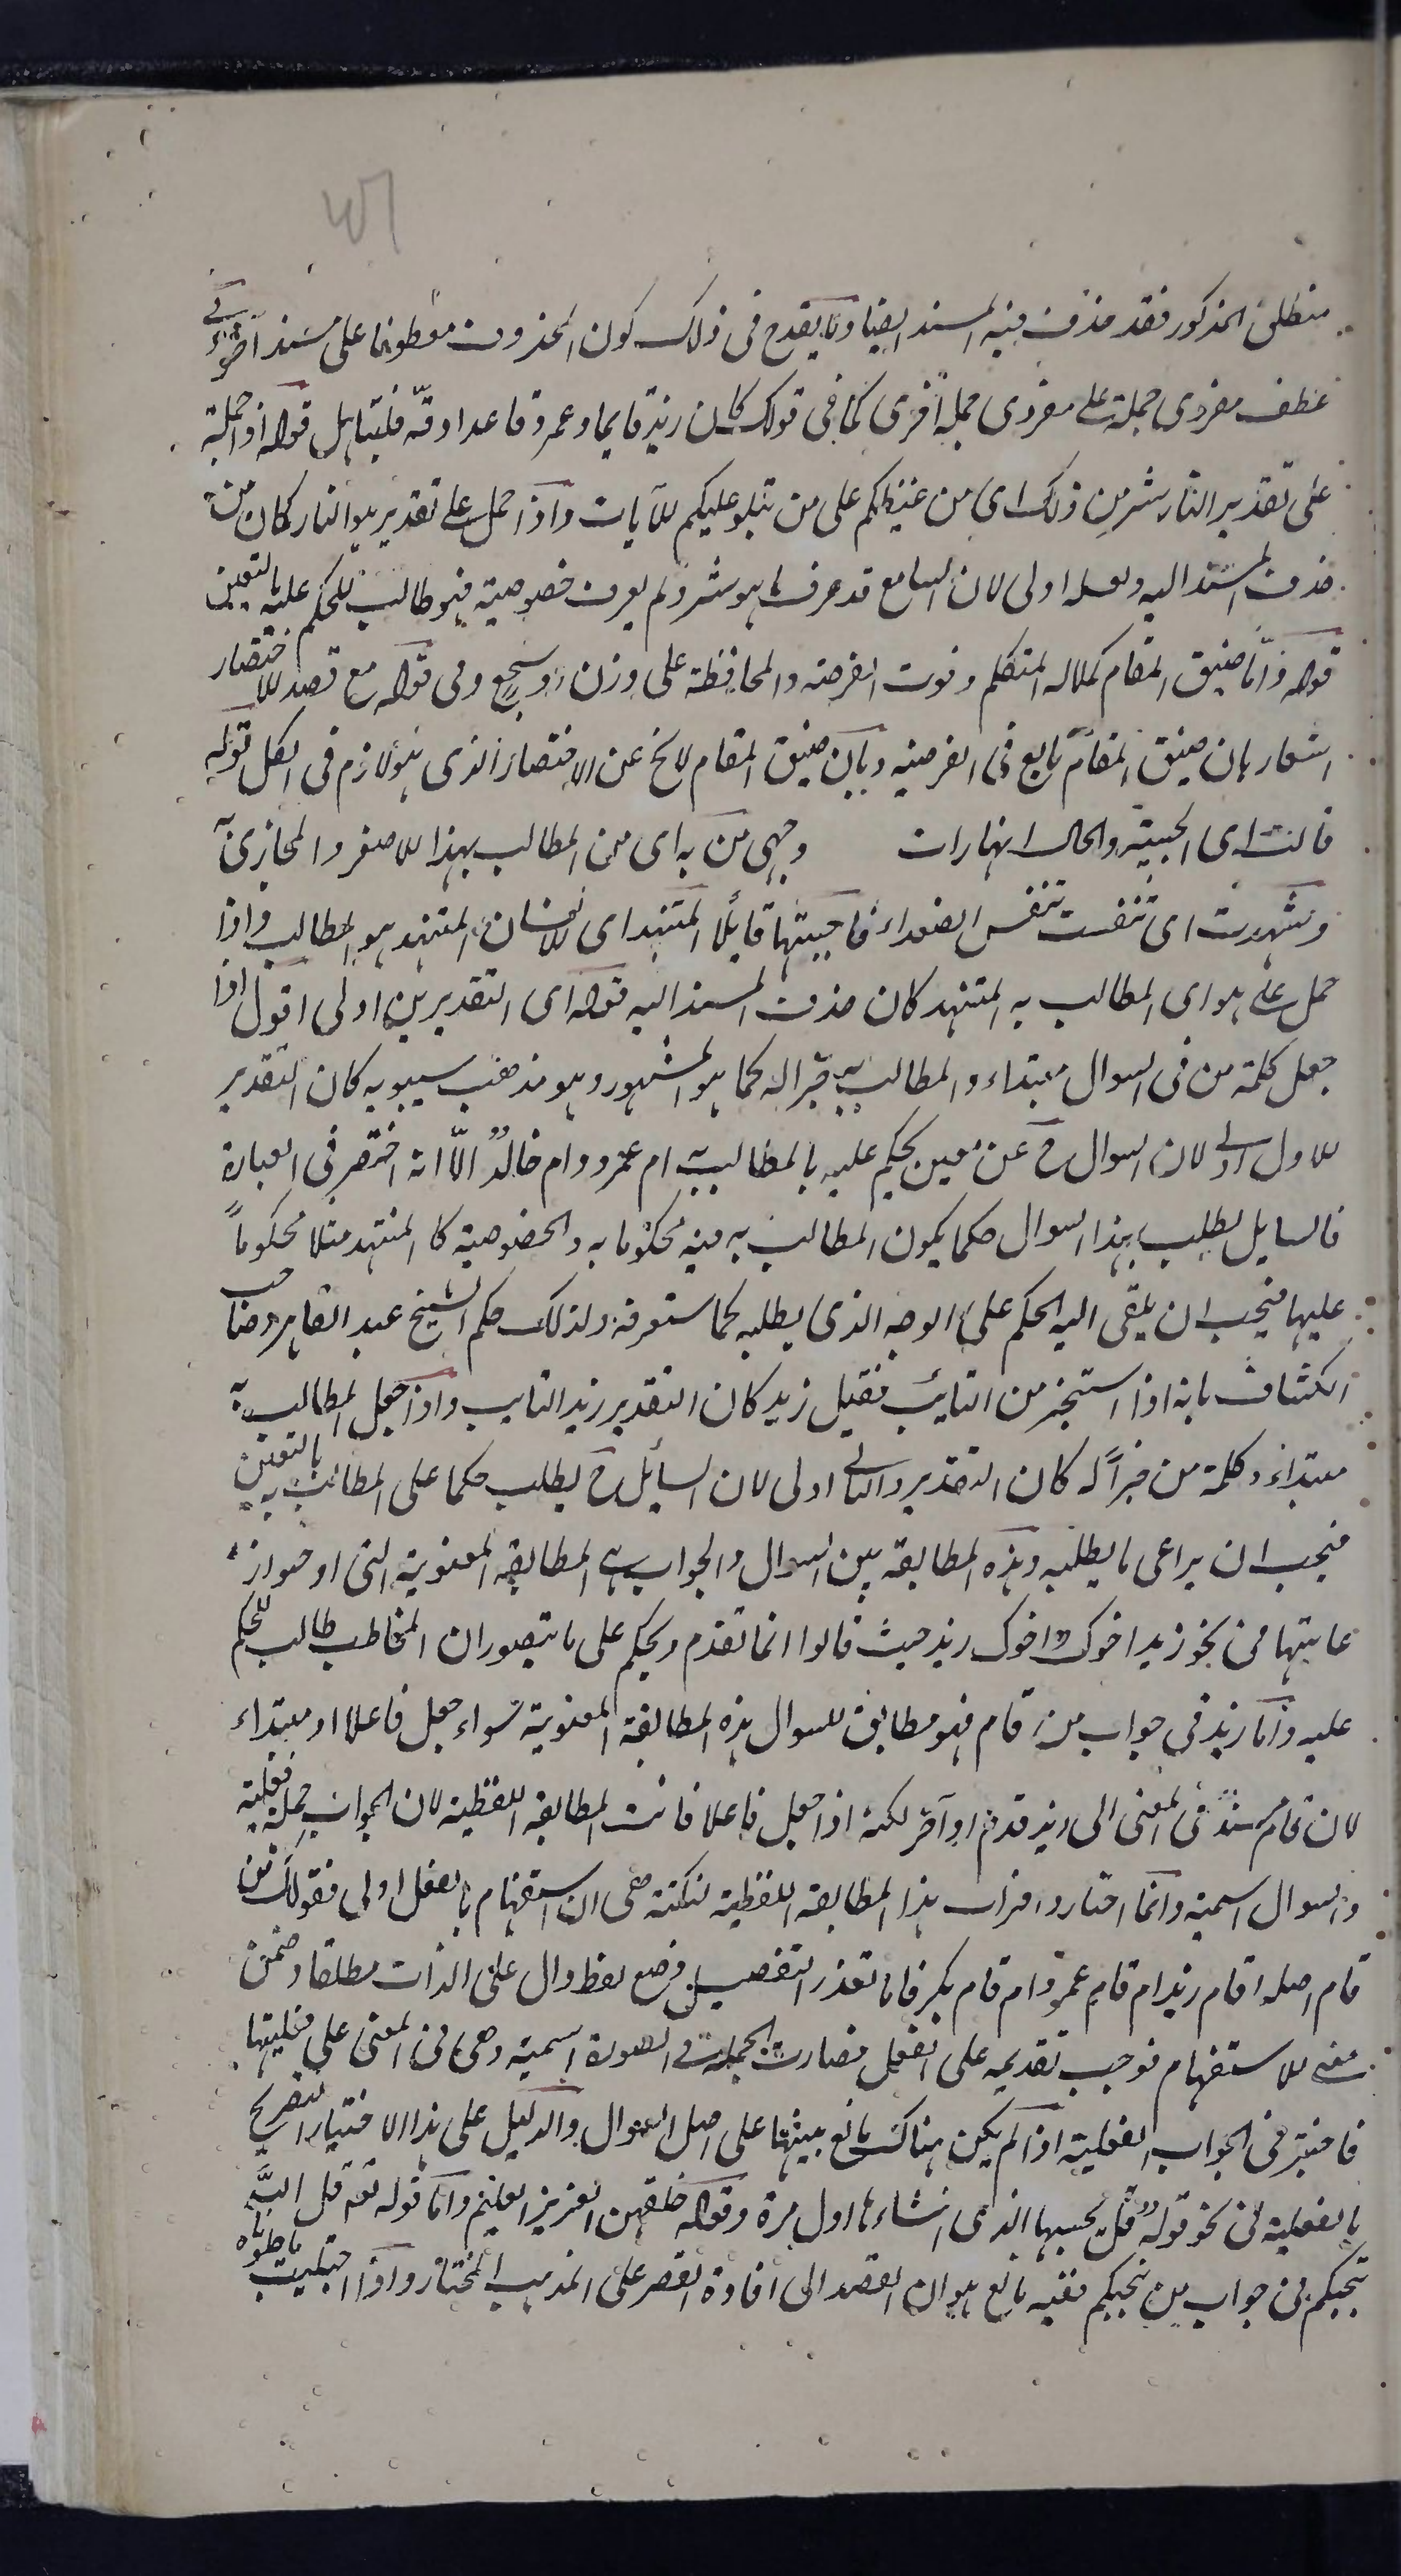 منطلق المذكور فقد حذف فيه المسند ايضا ولا يقدح فى ذلك كون المحذوف معطوفا على مسند آخر فى
عطف مفردى جملة على مفردى جملة اخرى كما فى قولك كان زيد قايما وعمرو قاعدا وقه فليتامل قوله اذا حملته
على تقدير النار شر من ذلك اى من غيظكم على من يتلو عليكم للآيات واذا حمل على تقدير هو النار كان من
حذف المسند اليه ولعله اولى لان السامع قد عرف ما هو شر ولم يعرف خصوصيته فهو طالب للحكم عليه بالتعيين
قوله واما ضيق المقام كملالة المتكلم وفوت الفرصة والمحافظة على وزن او سجع وفى قوله مع قصد للاختصار
اشعار بان ضيق المقام تابع فى الفرضية وبان ضيق المقام لا يخ عن الاختصار الذى هو لازم فى الكل قوله
قالت اى الحبيبة والحال انها رات وجهى من به اى من المطالب بهذا للاصفر والمجازى به
وتنهدت اى تنفست تنفس الصعداء فاجبتها قايلا المتنهد اى للانسان المتنهد هو المطالب واذا
حمل على هو اى المطالب به المتنهد كان حذف المسند اليه قوله اى التقديرين اولى اقول اذا
جعل كلمة من فى السوال مبتداء والمطالب به خبرا له كما هو المشهور وهو مذهب سيبويه كان التقدير
للاول اولى لان السوال ح عن معين يحكم عليه بالمطالب به ام عمرو ام خالد الا انه اختصر فى العبارة
فالسايل يطلب بهذا السوال حكما يكون المطالب به فيه محكوما به والخصوصية كالمتنهد مثلا محكوماً
عليها فيجب ان يلقى اليه الحكم على الوجه الذى يطلبه كما ستعرفه ولذلك حكم الشيخ عبد القاهر وصاحب
الكشاف بانه اذا استخبر من التايب فقيل زيد كان التقدير زيد التايب واذا جعل المطالب به
مبتداء وكلمة من خبراً له كان التقدير والثانى اولى لان السايل ح يطلب حكما على المطالب به بالتعيين
فيجب ان يراعى ما يطلبه وهذه المطابقة بين السوال والجواب هى المطابقة المعنوية التى اوجبوا
رعايتها فى نحو زيد اخوك واخوك زيد حيث قالوا انما تقدم ويحكم على ما يتصور ان المخاطب طالب للحكم
عليه واما زيد فى جواب من قام فهو مطابق للسوال هذه المطابقة المعنوية سواء جعل فاعلا او مبتداء
لان قام مسند فى المعنى الى زيد قدم او آخر لكنه اذا جعل فاعلا فاتت المطابقة اللفظية لان الجواب جملة فعلية
والسوال اسمية وانما اختاروا فوات هذا المطابقة اللفظية لنكتة هى ان استفهام بالفعل اولى فقولك من
قام اصله اقام زيد ام قام عمرو ام قام بكر فلما تعذر التفصيل وضع لفظ دال على الذات مطلقا وضمن
معنى للاستفهام فوجب تقديمه على الفعل فصارت الجملة فى الصورة اسمية وهى فى المعنى على فعليتها
فاختير فى الجواب الفعلية اذا لم يكن هناك مانع تنبيها على اصل السوال والدليل على هذا الاختيار التصريح
بالفعلية فى نحو قوله قل يحييها الذى انشاءها اول مرة وقوله خلقهن العزيز العليم واما قوله تعه قل الله
ينجيكم فى جواب من ينجيكم ففيه مانع هو ان القصد الى افادة القصر على المذهب المختار واذا